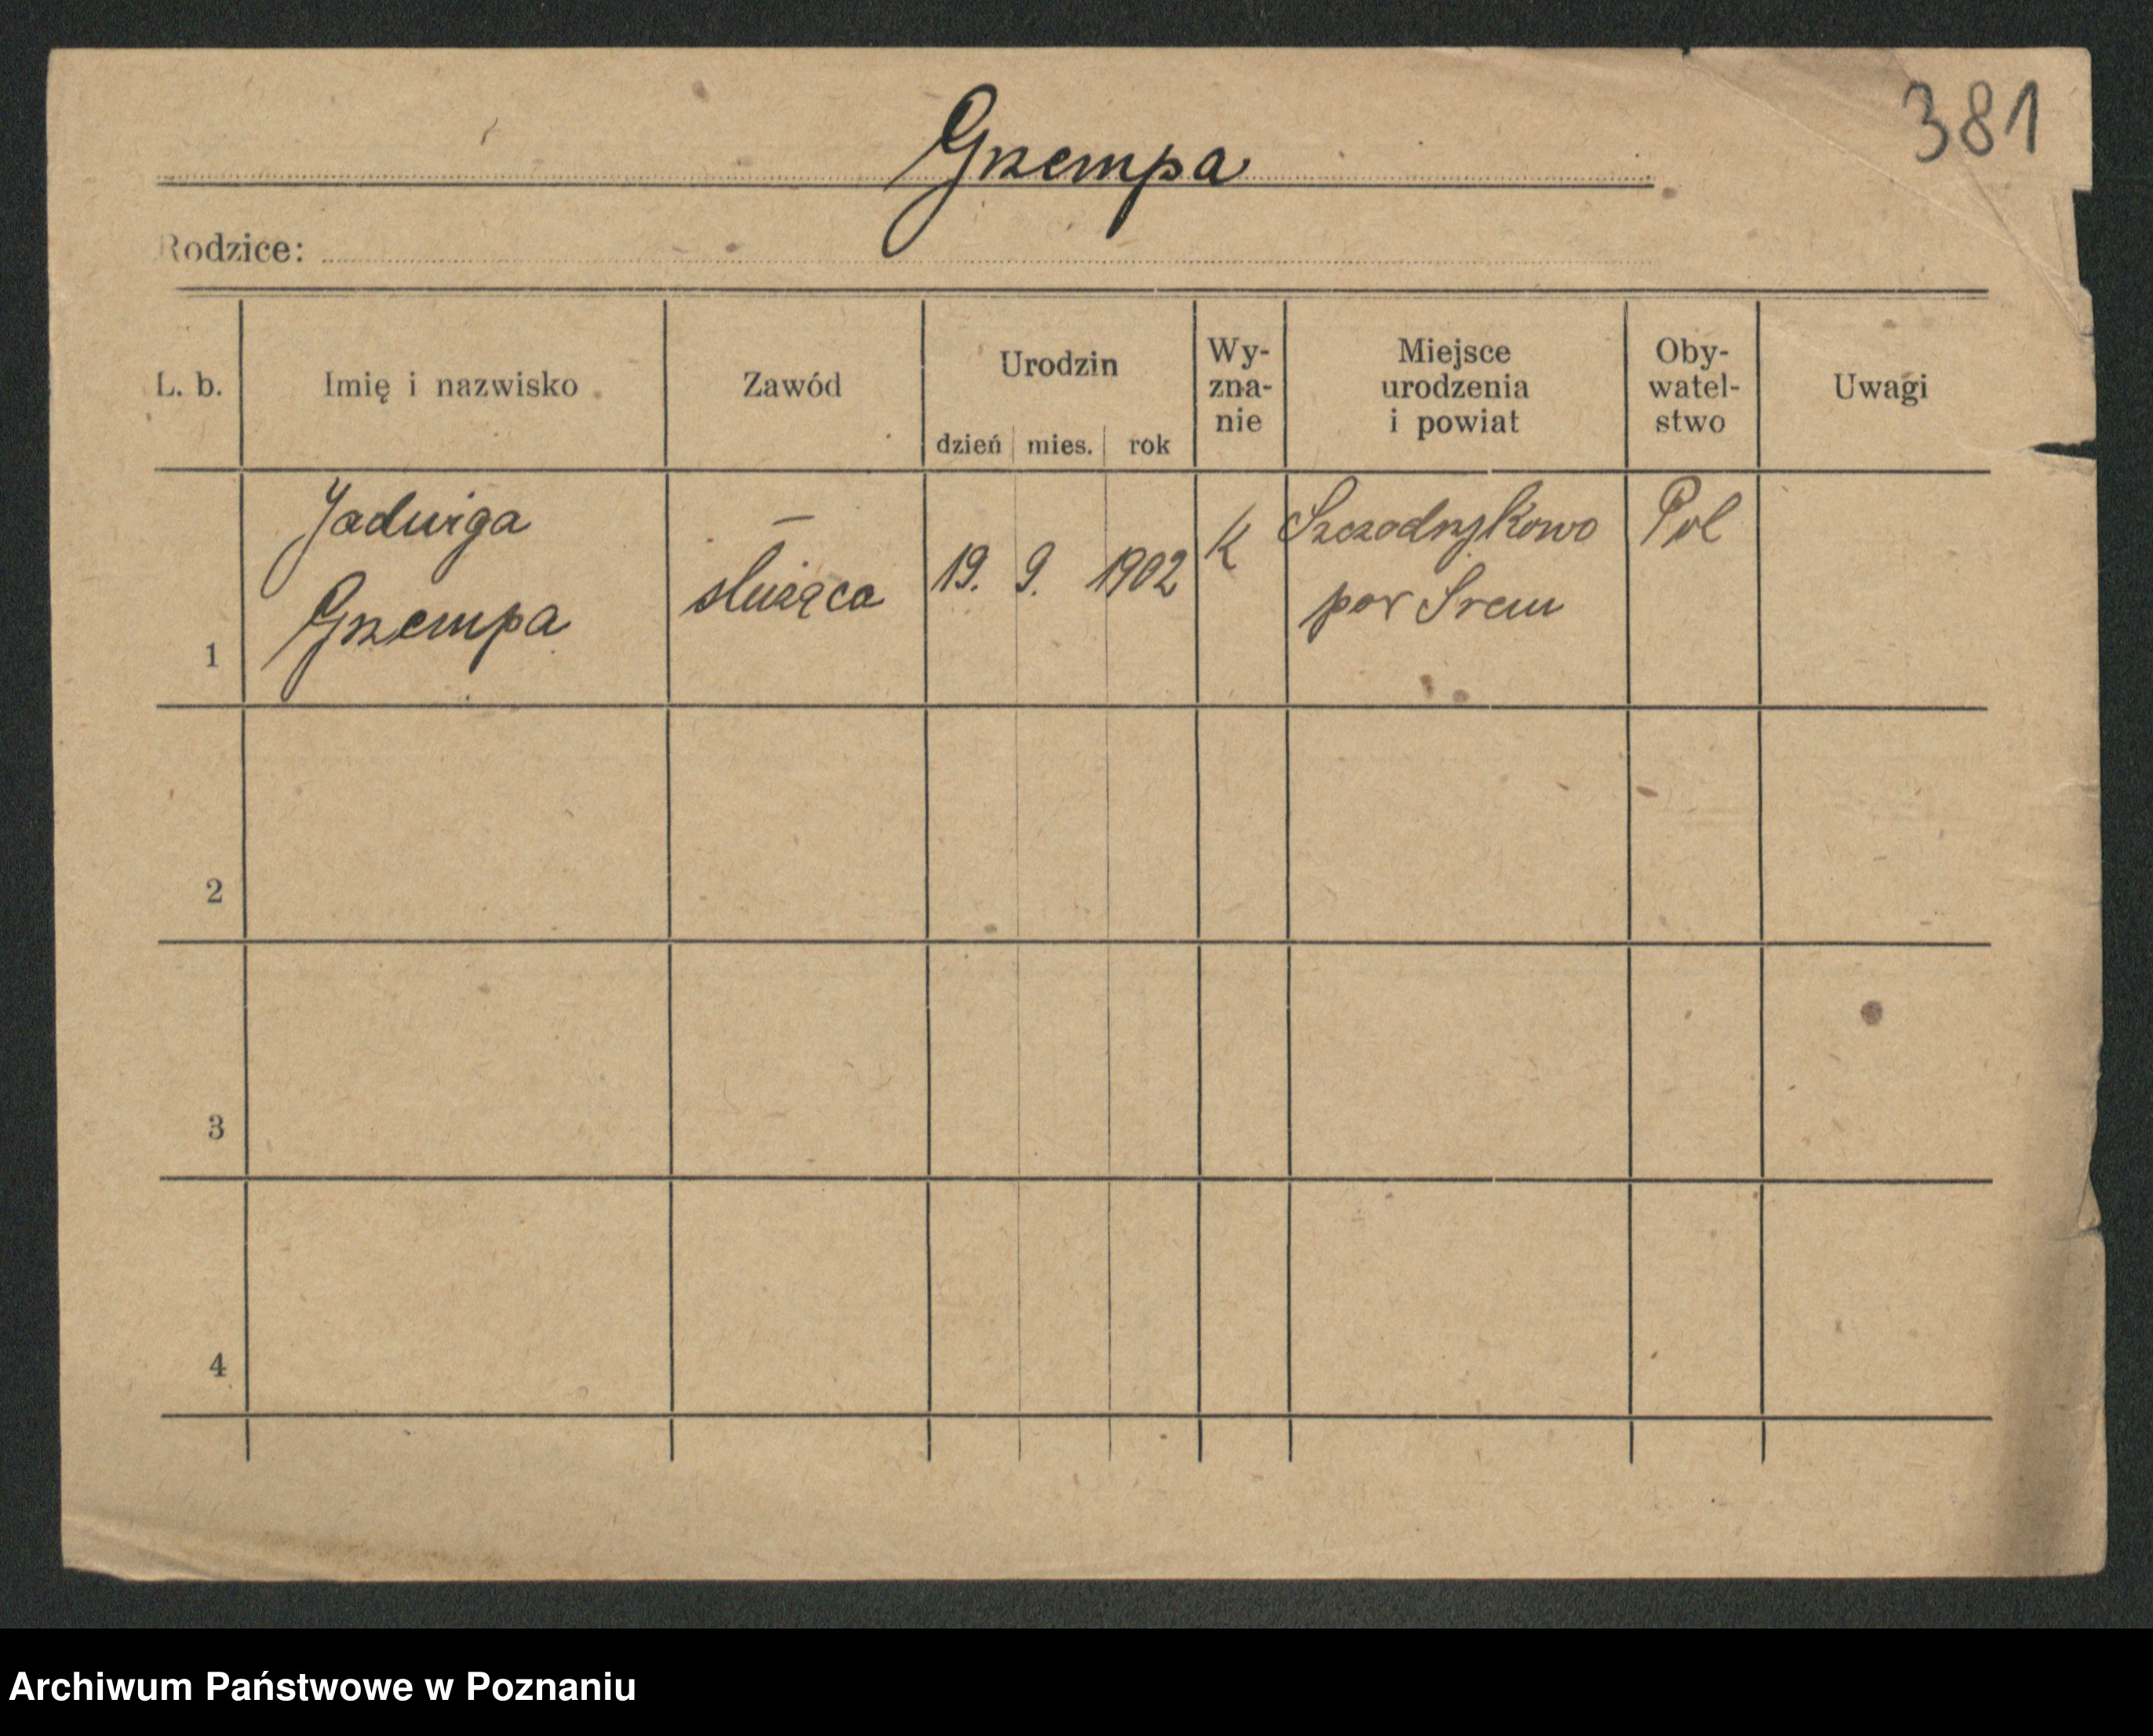 381
Grzempa
Rodzice:
L. b.
Imię i nazwisko
Zawód
Urodzin
dzień mies. rok
Wy-
zna-
nie
Miejsce
urodzenia
i powiat
Oby-
watel-
stwo
Uwagi
1
Jadwiga
Grzempa
—
służąca
19. 9. 1902
K
Szczodrzykowo
pow Śrem
Pol
2
3
4
Archiwum Państwowe w Poznaniu